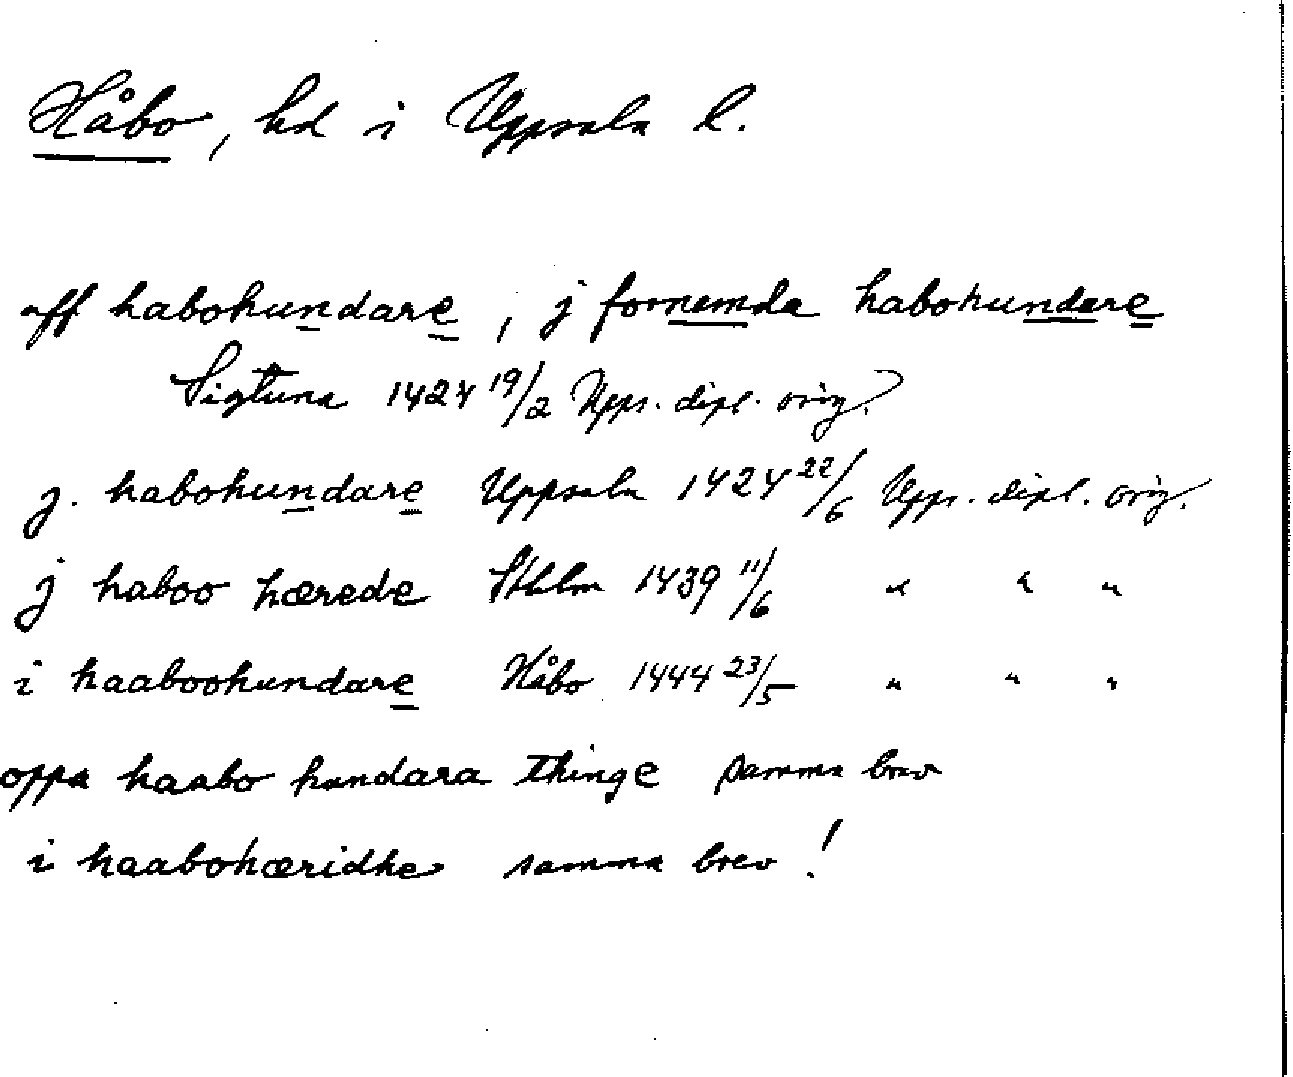 Håbo, hd i Uppsala l.
aff habohundare, j fornemda habohundare
Sigtuna 1424 19/2 Upps. dipl. orig.
j. habohundare Uppsala 1424 22/6 Upps. dipl. orig.
j haboo hærede Sthlm 1439 11/6 " " "
i haaboohundare Håbo 1444 23/5 " " "
oppa haabo hundara thinge samma brev
i haabohæridhe samma brev!